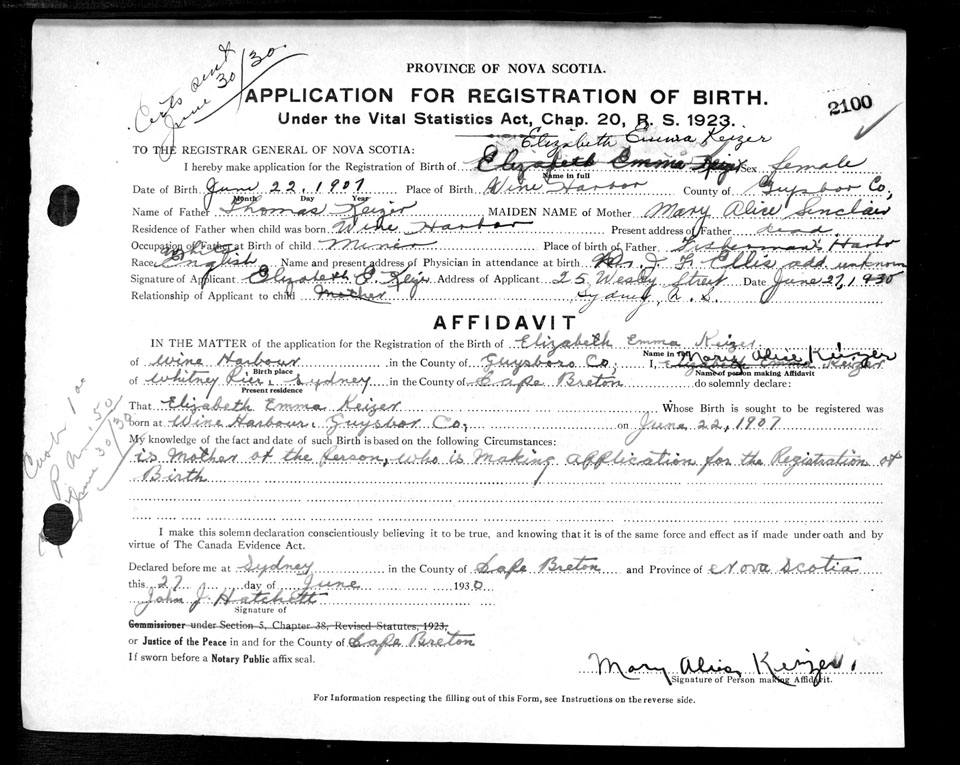 Certs sent
June 30/30.
PROVINCE OF NOVA SCOTIA.
APPLICATION FOR REGISTRATION OF BIRTH.
2100
Under the Vital Statistics Act, Chap. 20, R. S. 1923.
Elizabeth Emma Keizer
TO THE REGISTRAR GENERAL OF NOVA SCOTIA:
I hereby make application for the Registration of Birth of Elizabeth Emma Keizer Sex female
Name in full
Date of Birth June 22, 1907 Place of Birth Wine Harbor County of Guysbor Co,
Month Day Year
Name of Father Thomas Keizer MAIDEN NAME of Mother Mary Alice Sinclair
Residence of Father when child was born Wine Harbor Present address of Father dead.
Occupation of Father at Birth of child Miner Place of birth of Father Fisherman's Harbor
White
Race English Name and present address of Physician in attendance at birth Dr. J. F. Ellis add. unknown
Signature of Applicant Elizabeth E. Keizer Address of Applicant 25 Wesly Street Date June 27, 1930
Relationship of Applicant to child Mother Sydney, N. S.
AFFIDAVIT
IN THE MATTER of the application for the Registration of the Birth of Elizabeth Emma Keizer
Name in full Mary Alice Keizer
of Wine Harbour in the County of Guysboro Co, I, Elizabeth Emma Keizer
Birth place Name of person making Affidavit
of Whitney Pier, Sydney in the County of Cape Breton do solemnly declare:
Present residence
That Elizabeth Emma Keizer Whose Birth is sought to be registered was
born at Wine Harbour, Guysbor Co, on June 22, 1907
My knowledge of the fact and date of such Birth is based on the following Circumstances:
is Mother of the Person, who is Making application for the Registration of
Birth
I make this solemn declaration conscientiously believing it to be true, and knowing that it is of the same force and effect as if made under oath and by
virtue of The Canada Evidence Act.
Declared before me at Sydney in the County of Cape Breton and Province of Nova Scotia
this 27 day of June 1930
John J. Hatchett
Signature of
Commissioner under Section 5, Chapter 38, Revised Statutes, 1923,
or Justice of the Peace in and for the County of Cape Breton
If sworn before a Notary Public affix seal.
Mary Alice Keizer.
Signature of Person making Affidavit.
For Information respecting the filling out of this Form, see Instructions on the reverse side.
.50
June 30/30